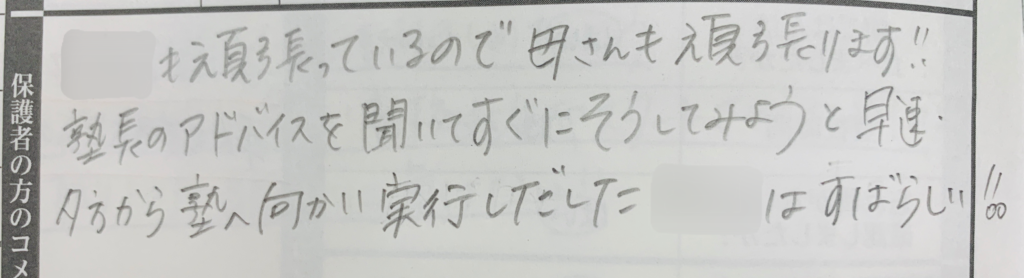 保護者の方のコメ
も頑張っているので母さんも頑張ります!!
塾長のアドバイスを聞いてすぐにそうしてみようと早速、
夕方から塾へ向かい実行しだした はすばらしい!!